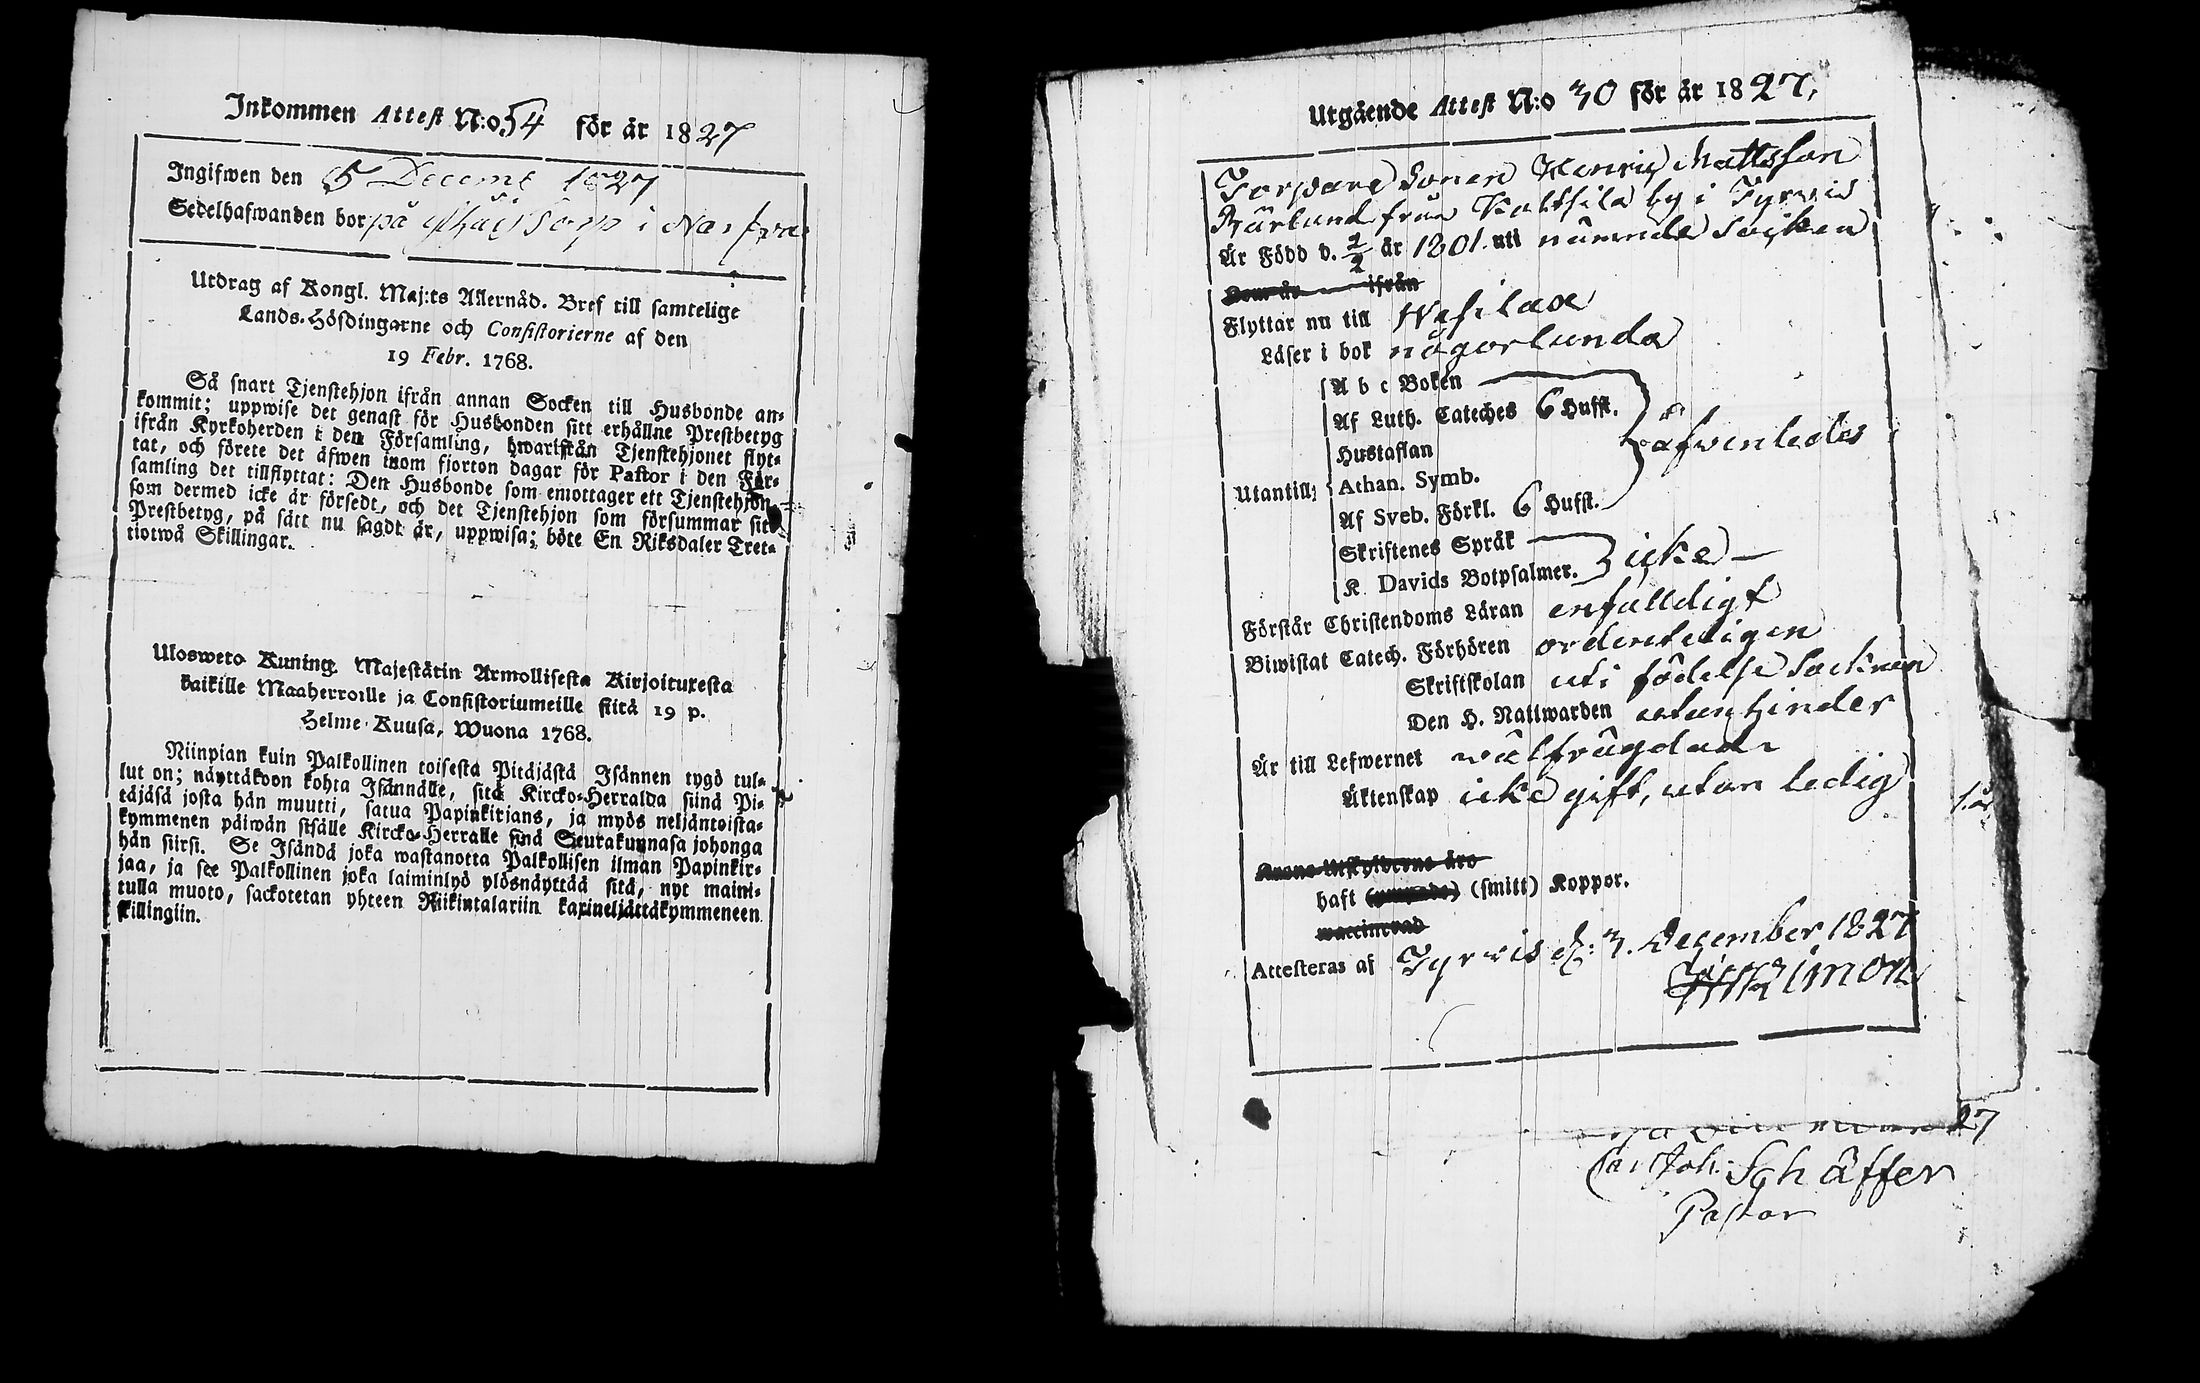 Inkommen Attest N:o 54 för år 1827
Ingifwen den 5 Decemb 1827
Sedelhafwanden bor på torp i Narfva
Utdrag af Kongl. Maj:ts Allernåd. Bref till samtelige
Lands-Höfdingarne och Consistorierne af den
19 Febr. 1768.
Så snart Tjenstehjon ifrån annan Socken till Husbonde an-
kommit; uppwise det genast för Husbonden sitt erhållne Prestbetyg
ifrån Kyrkoherden i den Församling, hwarifrån Tjenstehjonet flyt-
tat, och förete det äfwen inom fjorton dagar för Pastor i den För-
samling det tillflyttat: Den Husbonde som emottager ett Tjenstehjon,
som dermed icke är försedt, och det Tjenstehjon som försummar sitt
Prestbetyg, på sätt nu sagdt är, uppwisa; böte En Riksdaler Tret-
tiotwå Skillingar.
Ulosweto Kuning. Majestätin Armollisesta Kirjoituxesta
kaikille Maaherroille ja Consistoriumeille siitä 19 p.
Helme-Kuusa, Wuona 1768.
Niinpian kuin Palkollinen toisesta Pitäjästä Isännen tygö tul-
lut on; näyttäkoon kohta Isännälle, sitä Kircko-Herralda siinä Pi-
täjäsä josta hän muutti, saatua Papinkirjans, ja myös neljäntoista-
kymmenen päiwän sisälle Kircko-Herralle siinä Seurakunnasa johonga
hän siirsi. Se Isändä joka wastanotta Palkollisen ilman Papinkir-
jaa, ja see Palkollinen joka laiminlyö ylösnäyttää sitä, nyt maini-
tulla muoto, sackotetan yhteen Riikintalariin kaxineljättäkymmeneen
skillingiin.
Utgående Attest N:o 30 för år 1827,
Torpare Sonen Henric Mattsson
Bärlund från Kaltsila by i Tyrvis
Är Född d. 2/2 år 1801 uti nämnde Socken
Kom år ifrån
Flyttar nu till Wesilax
Läser i bok någorlunda
A b c Boken
Af Luth. Cateches 6 Hufst.
Hustaflan
äfvenledes
Utantill; Athan. Symb.
Af Sveb. Förkl. 6 Hufst.
Skriftenes Språk
icke
K Davids Botpsalmer.
Förstår Christendoms Läran enfaldigt
Biwistat Catech. Förhören ordenteligen
Skriftskolan uti födelse Socknen
Den H. Nattwarden utan hinder
Är till Lefwernet wälfrägdad
Äktenskap icke gift, utan ledig
Krono Utskylderne äro
haft (smitt) Koppor.
waccinerad
Attesteras af Tyrvis d: 3. December 1827
27
Carl Joh. Schäffer
Pastor